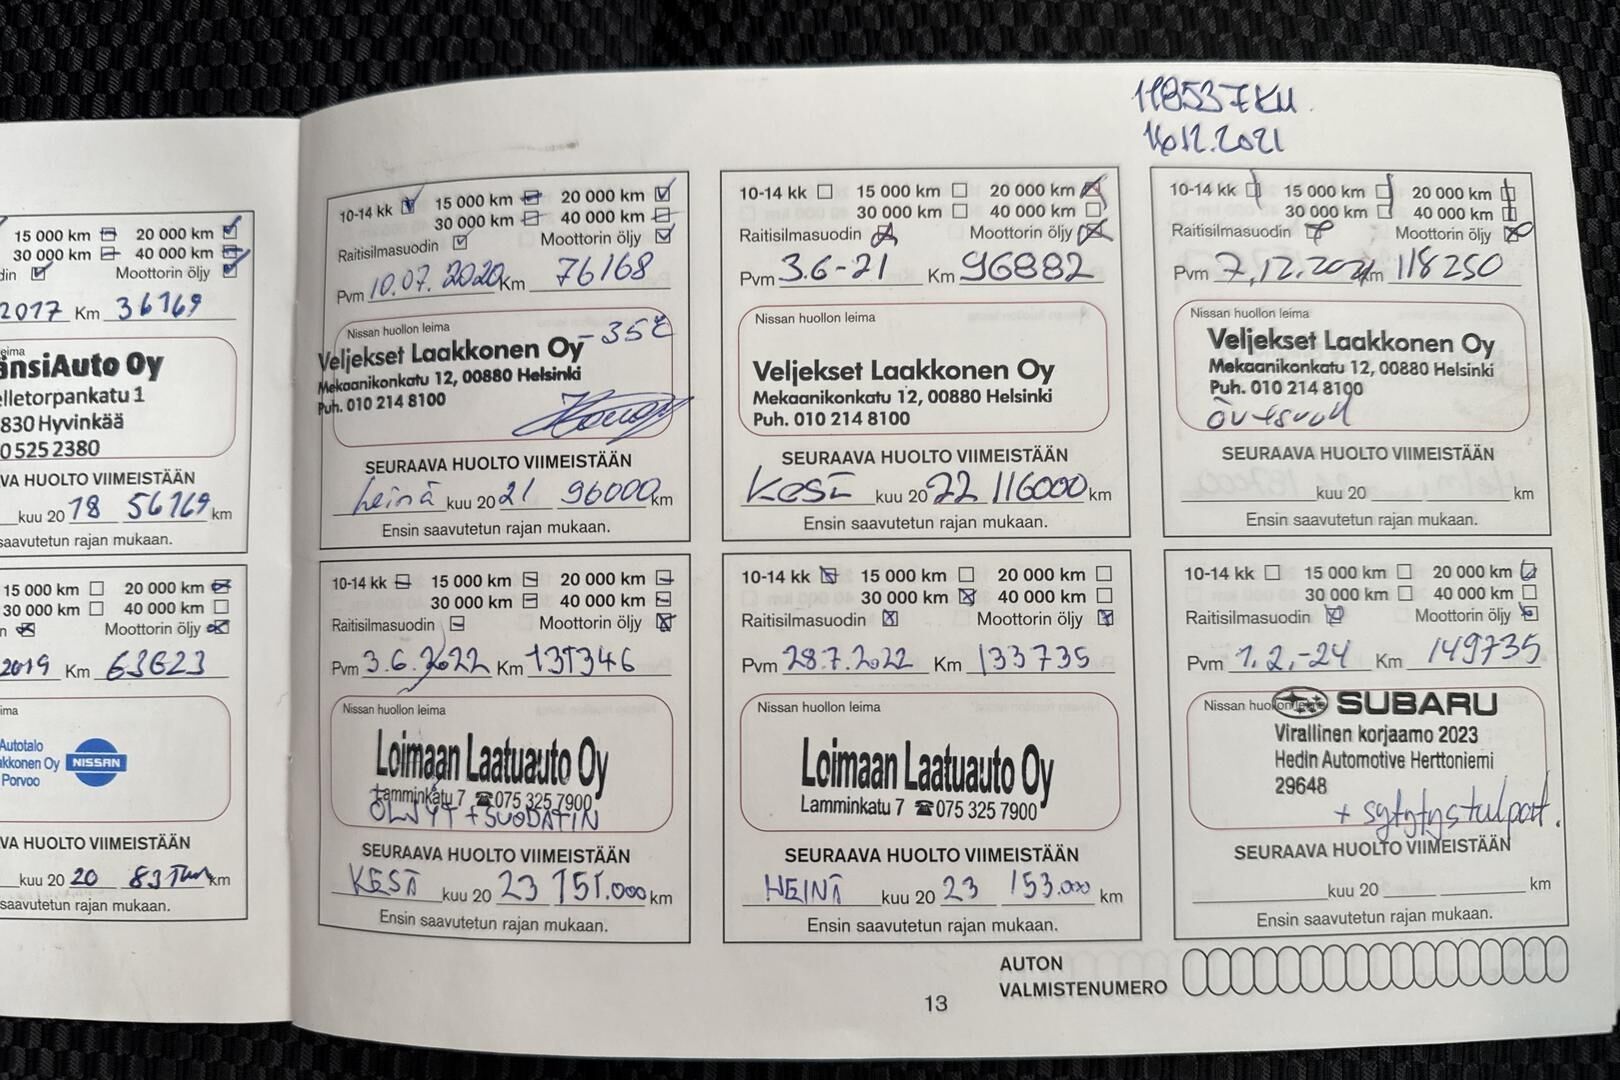 118537KM
16.12.2021
15 000 km 20 000 km
30 000 km 40 000 km
din Moottorin öljy
2017 Km 36169
eima
änsiAuto Oy
elletorpankatu 1
830 Hyvinkää
0 525 2380
VA HUOLTO VIIMEISTÄÄN
kuu 20 18 56169 km
saavutetun rajan mukaan.
15 000 km 20 000 km
30 000 km 40 000 km
n Moottorin öljy
2019 Km 63623
ima
Autotalo
akkonen Oy NISSAN
Porvoo
VA HUOLTO VIIMEISTÄÄN
kuu 20 20 83 km
saavutetun rajan mukaan.
10-14 kk 15 000 km 20 000 km
30 000 km 40 000 km
Raitisilmasuodin Moottorin öljy
Pvm 10.07.2020 Km 76168
Nissan huollon leima -35 c
Veljekset Laakkonen Oy
Mekaanikonkatu 12, 00880 Helsinki
Puh. 010 214 8100
SEURAAVA HUOLTO VIIMEISTÄÄN
heinä kuu 20 21 96000 km
Ensin saavutetun rajan mukaan.
10-14 kk 15 000 km 20 000 km
30 000 km 40 000 km
Raitisilmasuodin Moottorin öljy
Pvm 3.6-21 Km 96882
Nissan huollon leima
Veljekset Laakkonen Oy
Mekaanikonkatu 12, 00880 Helsinki
Puh. 010 214 8100
SEURAAVA HUOLTO VIIMEISTÄÄN
Kesä kuu 20 22 116000 km
Ensin saavutetun rajan mukaan.
10-14 kk 15 000 km 20 000 km
30 000 km 40 000 km
Raitisilmasuodin Moottorin öljy
Pvm 7,12.2021 Km 118250
Nissan huollon leima
Veljekset Laakkonen Oy
Mekaanikonkatu 12, 00880 Helsinki
Puh. 010 214 8100
SEURAAVA HUOLTO VIIMEISTÄÄN
kuu 20 km
Ensin saavutetun rajan mukaan.
10-14 kk 15 000 km 20 000 km
30 000 km 40 000 km
Raitisilmasuodin Moottorin öljy
Pvm 3.6.2022 Km 131346
Nissan huollon leima
Loimaan Laatuauto Oy
Lamminkatu 7 ☎075 325 7900
ÖLJYT + SUODATIN
SEURAAVA HUOLTO VIIMEISTÄÄN
KESÄ kuu 20 23 151.000 km
Ensin saavutetun rajan mukaan.
10-14 kk 15 000 km 20 000 km
30 000 km 40 000 km
Raitisilmasuodin Moottorin öljy
Pvm 28.7.2022 Km 133735
Nissan huollon leima
Loimaan Laatuauto Oy
Lamminkatu 7 ☎075 325 7900
SEURAAVA HUOLTO VIIMEISTÄÄN
HEINÄ kuu 20 23 153.000 km
Ensin saavutetun rajan mukaan.
10-14 kk 15 000 km 20 000 km
30 000 km 40 000 km
Raitisilmasuodin Moottorin öljy
Pvm 1.2.-24 Km 149735
Nissan huollon leima SUBARU
Virallinen korjaamo 2023
Hedin Automotive Herttoniemi
29648
+ sytytystulpat.
SEURAAVA HUOLTO VIIMEISTÄÄN
kuu 20 km
Ensin saavutetun rajan mukaan.
AUTON
VALMISTENUMERO
13